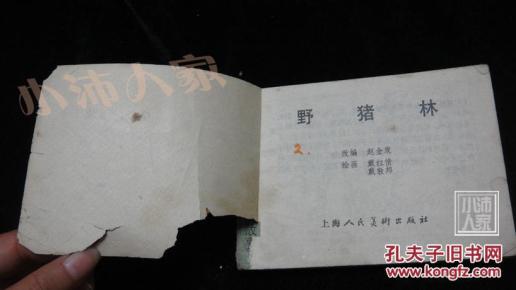 小沛人家
野猪林
2.
改编 赵金庚
绘画 戴红倩
戴敦邦
上海人民美術出版社
小沛
人家
孔夫子旧书网